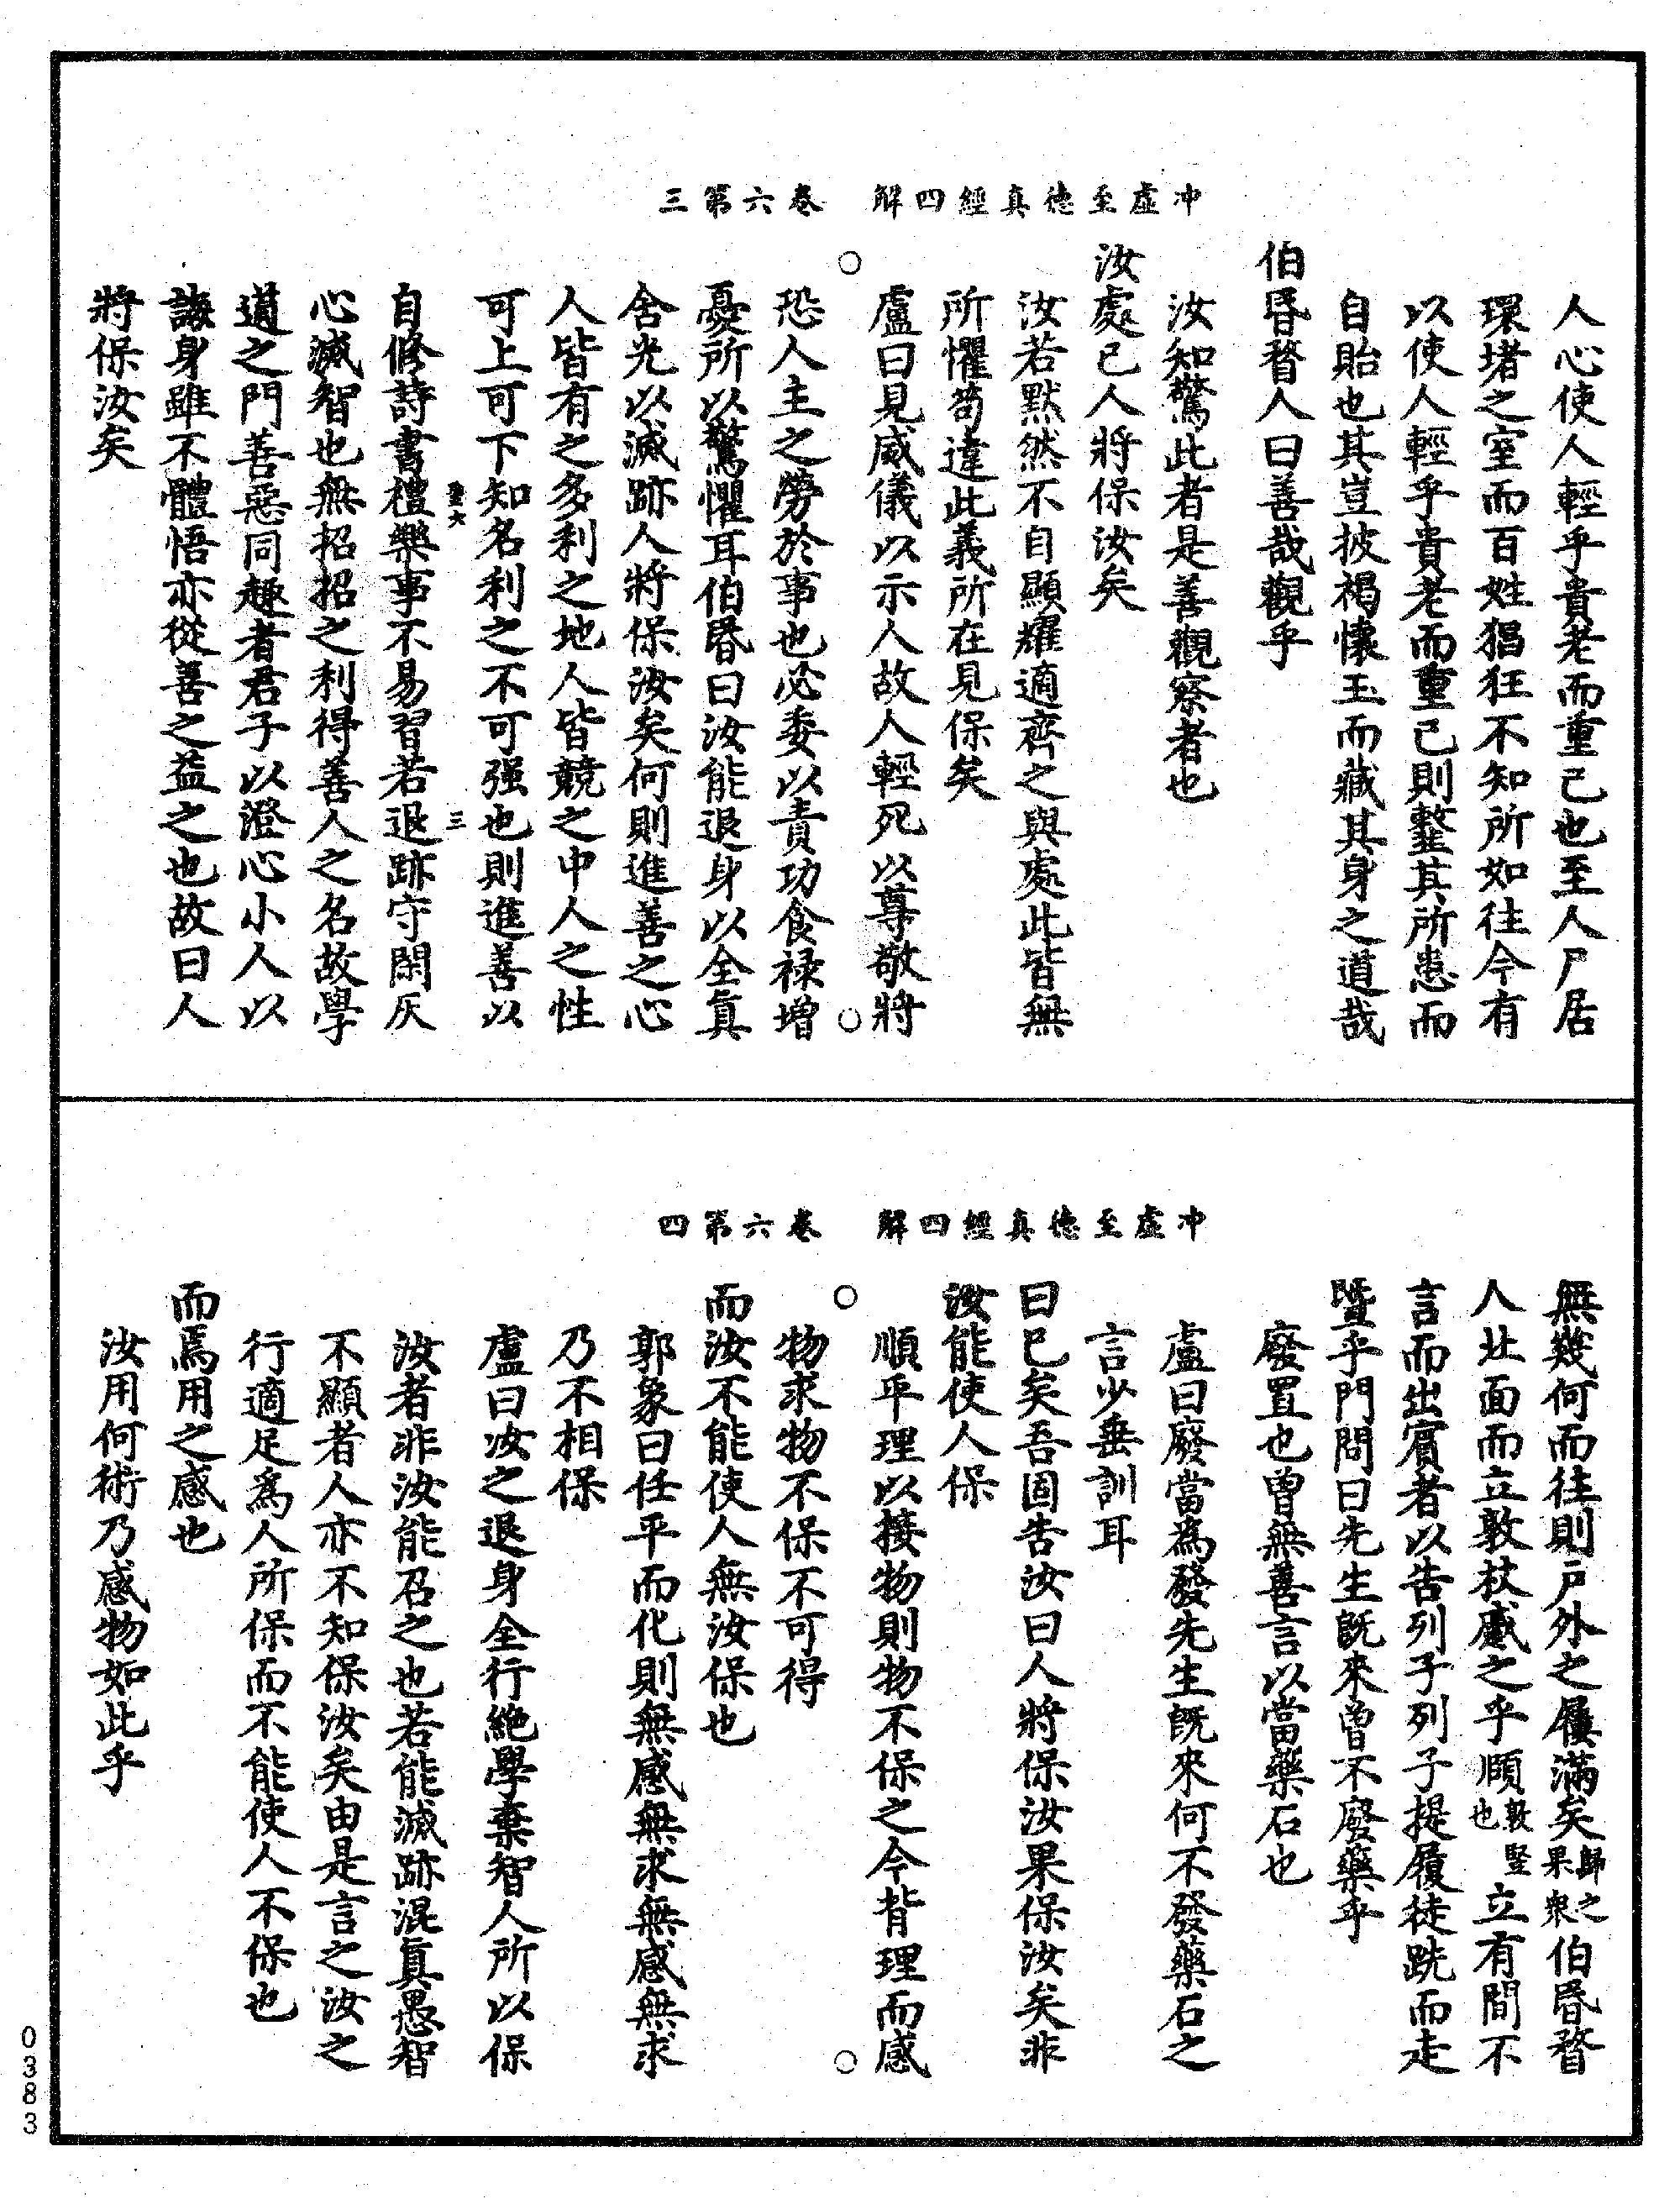 冲虛至德真經四解　卷六第三
人心使人輕乎貴老而重己也至人尸居
環堵之室而百姓猖狂不知所如往今有
以使人輕乎貴老而重己則䪡其所患而
自貽也其豈披褐懷玉而藏其身之道哉
伯昬瞀人曰善哉觀乎
汝知驚此者是善觀察者也
汝處已人將保汝矣
汝若黙然不自顯耀適齊之與處此皆無
所懼苟違此義所在見保矣
盧曰見威儀以示人故人輕死以尊敬將
恐人主之勞於事也必委以責功食禄增
憂所以驚懼耳伯昬曰汝能退身以全眞
含光以滅跡人將保汝矣何則進善之心
人皆有之多利之地人皆競之中人之性
可上可下知名利之不可强也則進善以
自修詩書禮樂事不易習若退跡守閑灰
心滅智也無招招之利得善人之名故學
道之門善惡同趣者君子以澄心小人以
誨身雖不體悟亦從善之益之也故曰人
將保汝矣
冲虛至德真經四解　卷六第四
無幾何而往則户外之屨滿矣歸之果衆伯昬瞀
人北面而立敦杖蹙之乎頤敦竪也立有間不
言而出賓者以告列子列子提履徒跣而走
曁乎門問曰先生旣來曾不廢藥乎
廢置也曾無善言以當藥石也
盧曰廢當為發先生旣來何不發藥石之
言少垂訓耳
曰已矣吾固告汝曰人將保汝果保汝矣非
汝能使人保
順乎理以接物則物不保之今背理而感
物求物不保不可得
而汝不能使人無汝保也
郭象曰任平而化則無感無求無感無求
乃不相保
盧曰汝之退身全行絶學棄智人所以保
汝者非汝能召之也若能滅跡混眞愚智
不顯者人亦不知保汝矣由是言之汝之
行適足爲人所保而不能使人不保也
而焉用之感也
汝用何術乃感物如此乎
0383